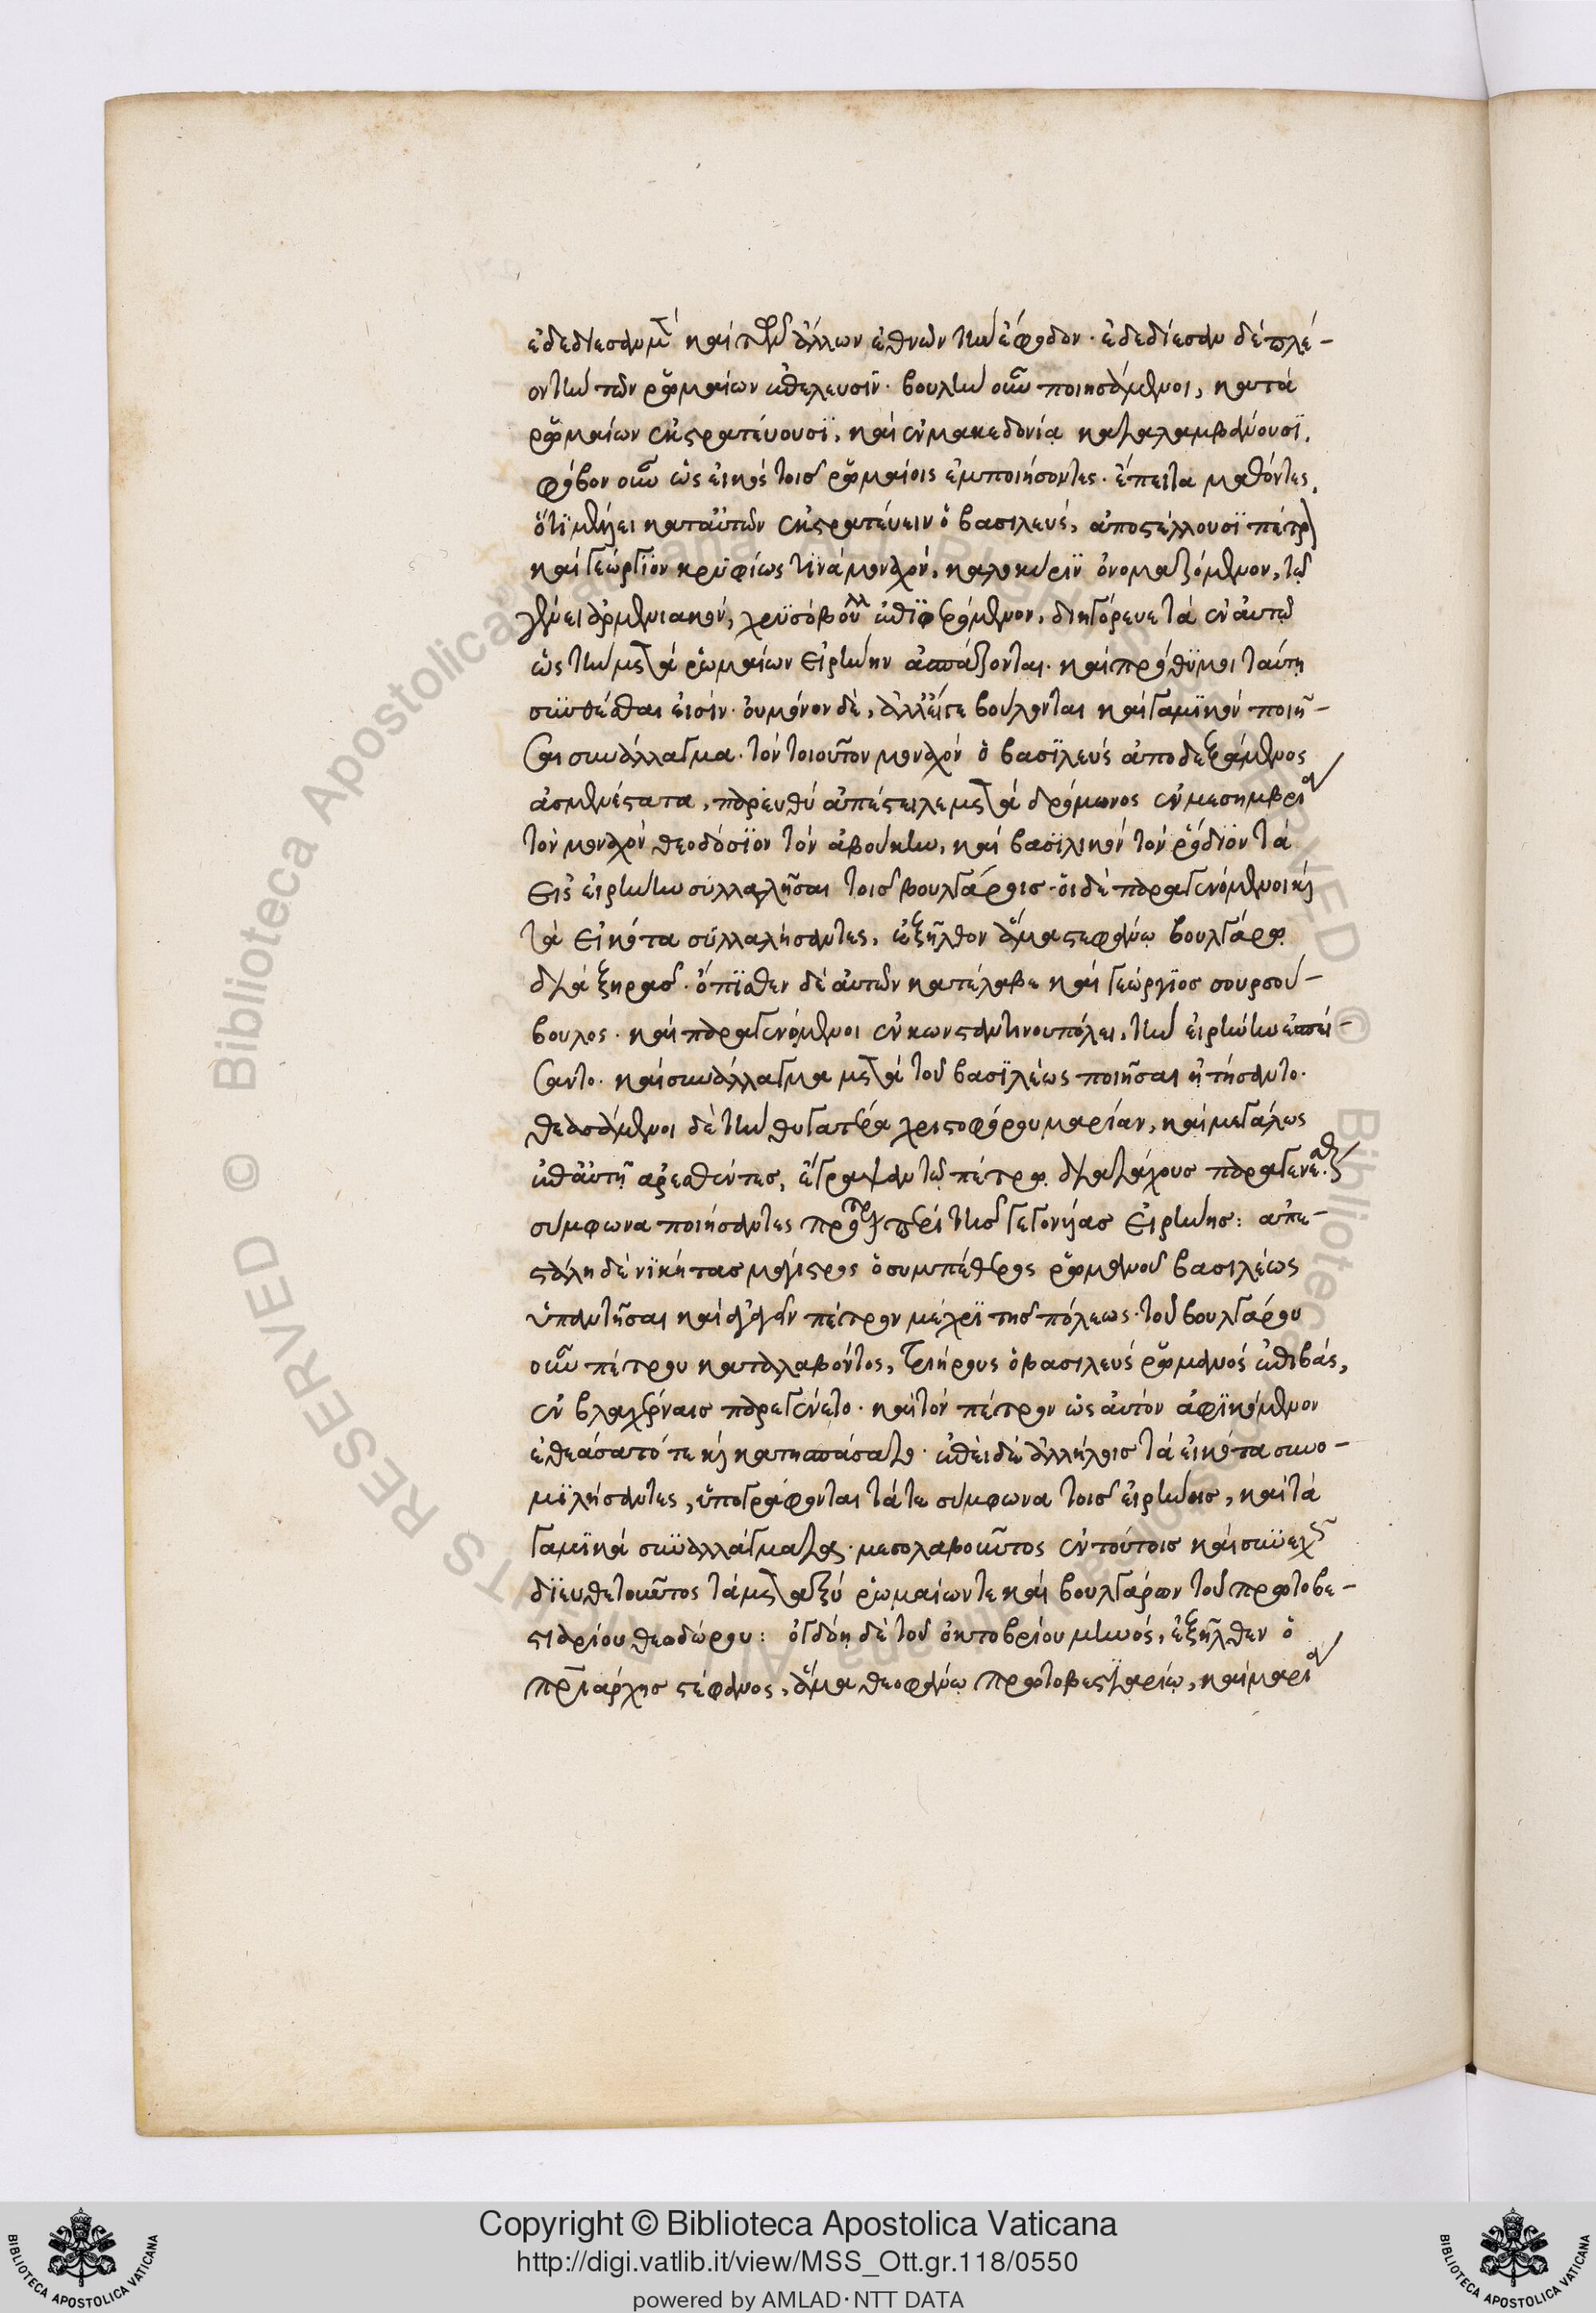 ἐδεδίεσαν μὲν καὶ τὴν τῶν ἄλλων ἐθνῶν ἔφοδον· ἐδεδίεσαν δὲ πλέ-
ον τὴν τῶν ῥωμαίων ἐπέλευσιν· βουλὴν οὖν ποιησάμενοι, κατὰ
ῥωμαίων ἐκστρατεύουσϊ, καὶ ἐν μακεδονία καταλαμβάνουσϊ,
φόβον οὖν ὡς εἰκὸς τοῖς ῥωμαίοις ἐμποιήσοντες· ἔπειτα μαθόντες,
ὅτϊ μέλλει κατ' αὐτῶν ἐκστρατεύειν ὁ βασιλεὺς, ἀποστέλλουσϊ πέτρος
καὶ γεώργϊον κρυφίως τϊνὰ μοναχὸν, καλοκυρϊν ὀνομαζόμενον, τῶ
γένει ἀρμενιακὸν, χρυσόβουλλον ἐπϊφερόμενον, διηγόρευε τὰ ἐν αὐτῶ
ὡς τὴν μετὰ ῥωμαίων εἰρήνην ἀσπάζονται· καὶ πρόθυμοι ταύτη
συνθέσθαι εἰσίν· οὐ μόνον δὲ, ἀλλ' εἴγε βούλονται καὶ γαμϊκὸν ποιῆ-
σαι συνάλλαγμα· τὸν τοιοῦτον μοναχὸν ὁ βασϊλεὺς ἀποδεξάμενος
ἀσμενέστατα, παρευθὺ ἀπέστειλε μετὰ δρόμωνος ἐν μεσημβρία
τὸν μοναχὸν θεοδόσϊον τὸν ἀβούκην, καὶ βασϊλικὸν τὸν ῥόδϊον τὰ
εἰς εἰρήνην συλλαλῆσαι τοῖς βουλγάροις· οἱ δὲ παραγενόμενοι καὶ
τὰ εἰκότα συλλαλήσαντες, ἐξῆλθον ἅμα στεφάνω βουλγάρω
διὰ ξηρᾶς· ὄπϊσθεν δὲ αὐτῶν κατέλαβε καὶ γεώργϊος σουρσού-
βουλος· καὶ παραγενόμενοι ἐν κωνσταντινουπόλει, τὴν εἰρήνην ἐσπεί-
σαντο· καὶ συνάλλαγμα μετὰ τοῦ βασϊλέως ποιῆσαι ἠτήσαντο·
θεασάμενοι δὲ τὴν θυγατέρα χριστοφόρου μαρίαν, καὶ μεγάλως
ἐπ' αὐτῆ ἀρεσθέντες, ἔγραψαν τῶ πέτρω διὰ τάχους παραγενέσθαι·
σύμφωνα ποιήσαντες πρότερον περὶ τῆς γεγονυίας εἰρήνης: ἀπε-
στάλη δὲ νϊκήτας μάγιστρος ὁ συμπέθερος ῥωμανοῦ βασιλέως
ὑπαντῆσαι καὶ ἀγαγεῖν πέτρον μέχρϊ τῆς πόλεως· τοῦ βουλγάρου
οὖν πέτρου καταλαβόντος, τριήρους ὁ βασιλεὺς ῥωμανὸς ἐπιβὰς,
ἐν βλαχέρναις παρεγένετο· καὶ τὸν πέτρον ὡς αὐτὸν ἀφϊκόμενον
ἐθεάσατό τε καὶ κατησπάσατο· ἐπεὶ δὲ ἀλλήλοις τὰ εἰκότα συνο-
μϊλήσαντες, ὑπογράφονται τά τε σύμφωνα τοῖς εἰρήνοις, καὶ τὰ
γαμϊκὰ συναλλάγματα· μεσολαβοῦντος ἐν τούτοις καὶ συνεχῶς
δϊευθετοῦντος τὰ μεταξὺ ῥωμαίων τε καὶ βουλγάρων τοῦ πρωτοβε-
στιαρίου θεοδώρου: ὀγδόη δὲ τοῦ ὀκτοβρίου μηνὸς, ἐξῆλθεν ὁ
πατριάρχης στέφανος, ἅμα θεοφάνω πρωτοβεστιαρίω, καὶ μαρία
Copyright © Biblioteca Apostolica Vaticana
http://digi.vatlib.it/view/MSS_Ott.gr.118/0550
powered by AMLAD·NTT DATA